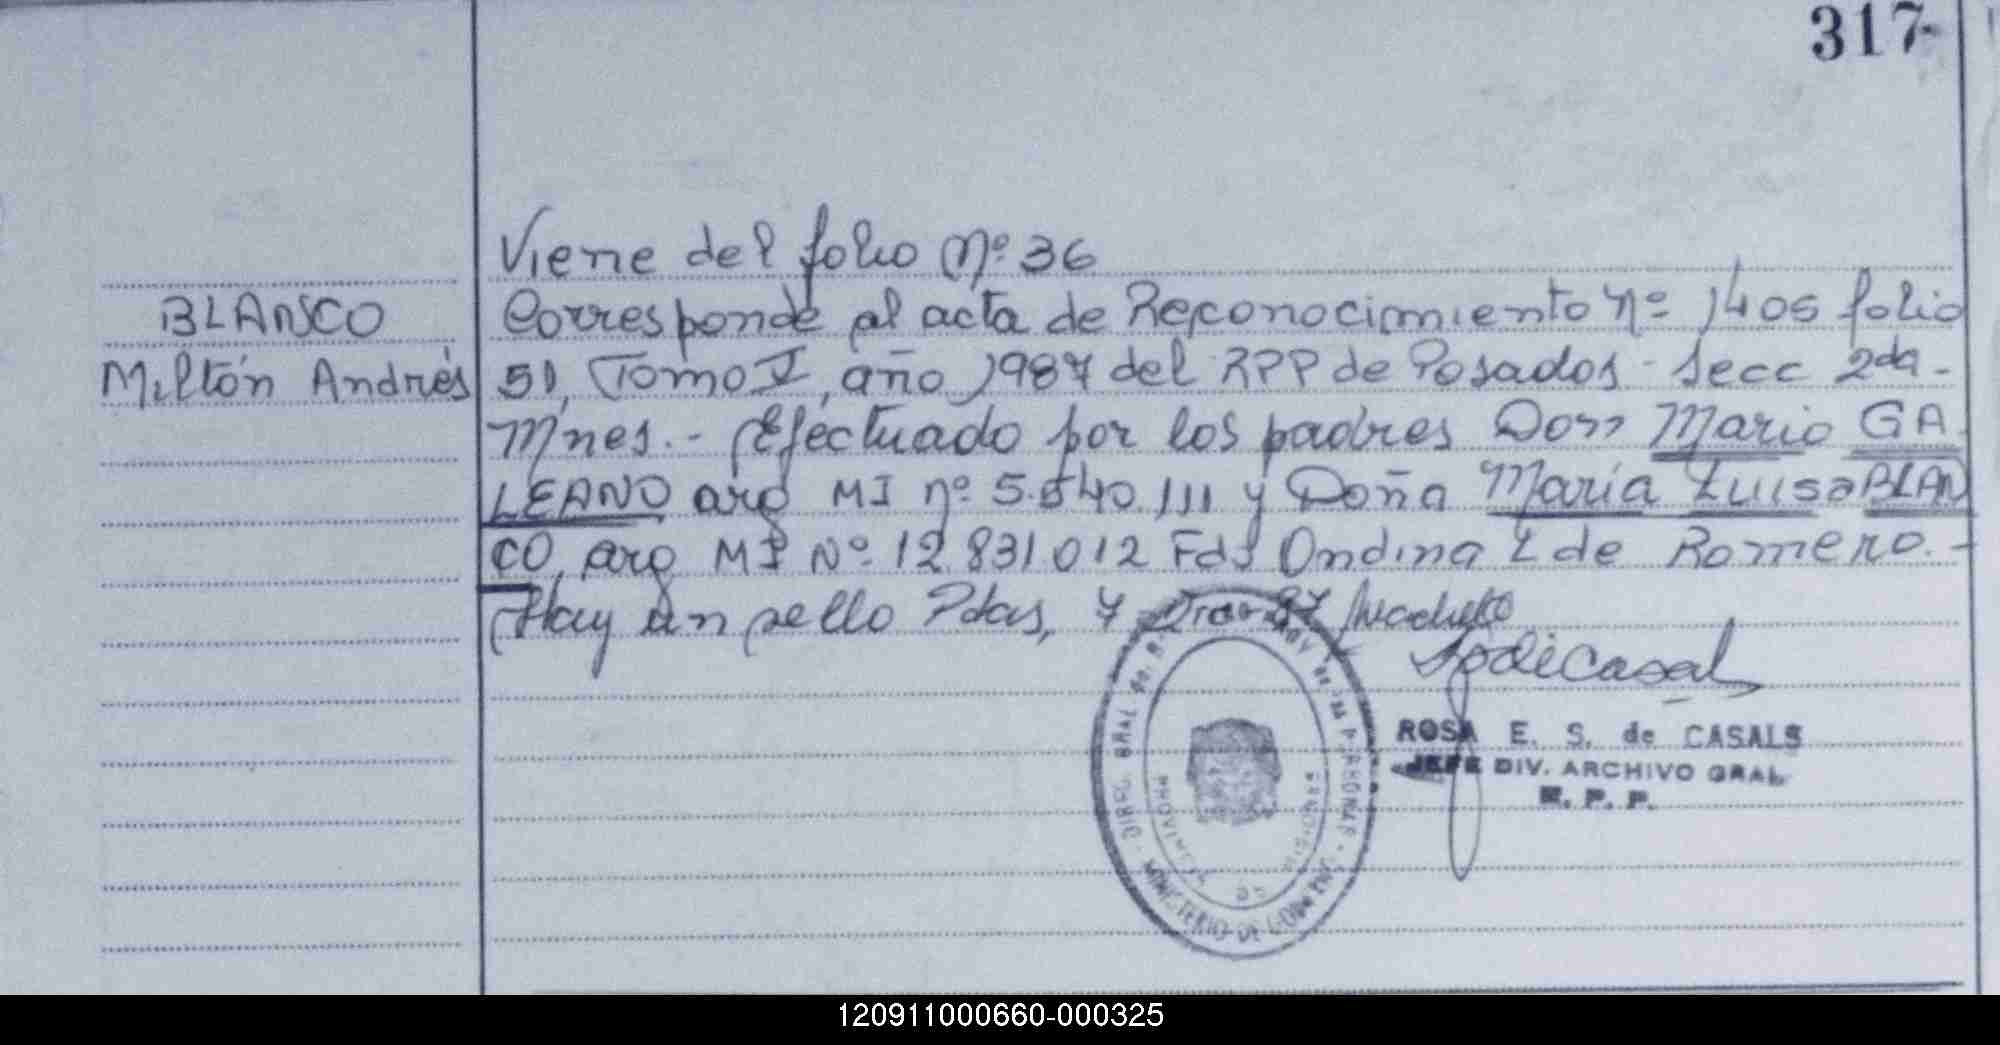 317
Viene del folio Nº 36
BLANCO
Corresponde al acta de Reconocimiento nº 1405 folio
Miltón Andrés
51, Tomo V, año 1987 del RPP de Posadas - Secc 2da -
Mnes. - Efectuado por los padres Don Mario GA
LEANO arg MI nº 5.540.111 y Doña María Luisa BLAN
CO, arg MI Nº 12 831 012 Fdo Ondina L de Romero. -
Hay un sello Pdas, 7 87
ROSA E. S. de CASALS
JEFE DIV. ARCHIVO GRAL
R. P. P.
DIREC. GRAL DE PERSONAS - MINISTERIO DE GOBIERNO
PROVINCIA DE MISIONES
120911000660-000325